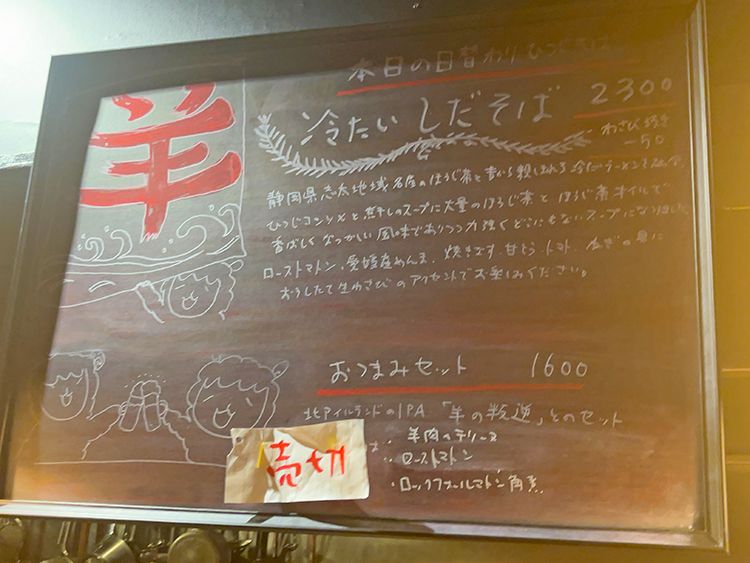 羊
本日の日替わりひつじそば
冷たいしだそば 2300
わさび抜き
-50
静岡県志太地域名産のほうじ茶と昔から親しまれる冷たいラーメンを
ひつじコンソメと煮干しのスープに大量のほうじ茶とほうじ茶オイルで
香ばしくなつかしい風味でありつつ力強くどこにもないスープになりました
ローストマトン、愛媛産めんま、焼きなす、甘とう、トマト、ねぎの具に
おろしたて生わさびのアクセントでお楽しみください。
おつまみセット 1600
北アイルランドのIPA「羊の叛逆」とのセット
売切
・羊肉のテリーヌ
・ローストマトン
・ロックフォールマトン角煮